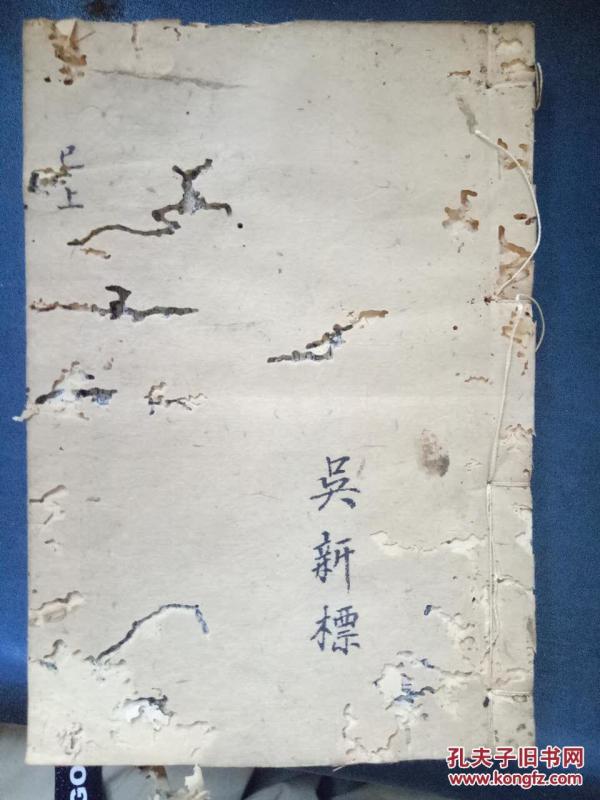 吳新標
已上
GO
孔夫子旧书网
www.kongfz.com